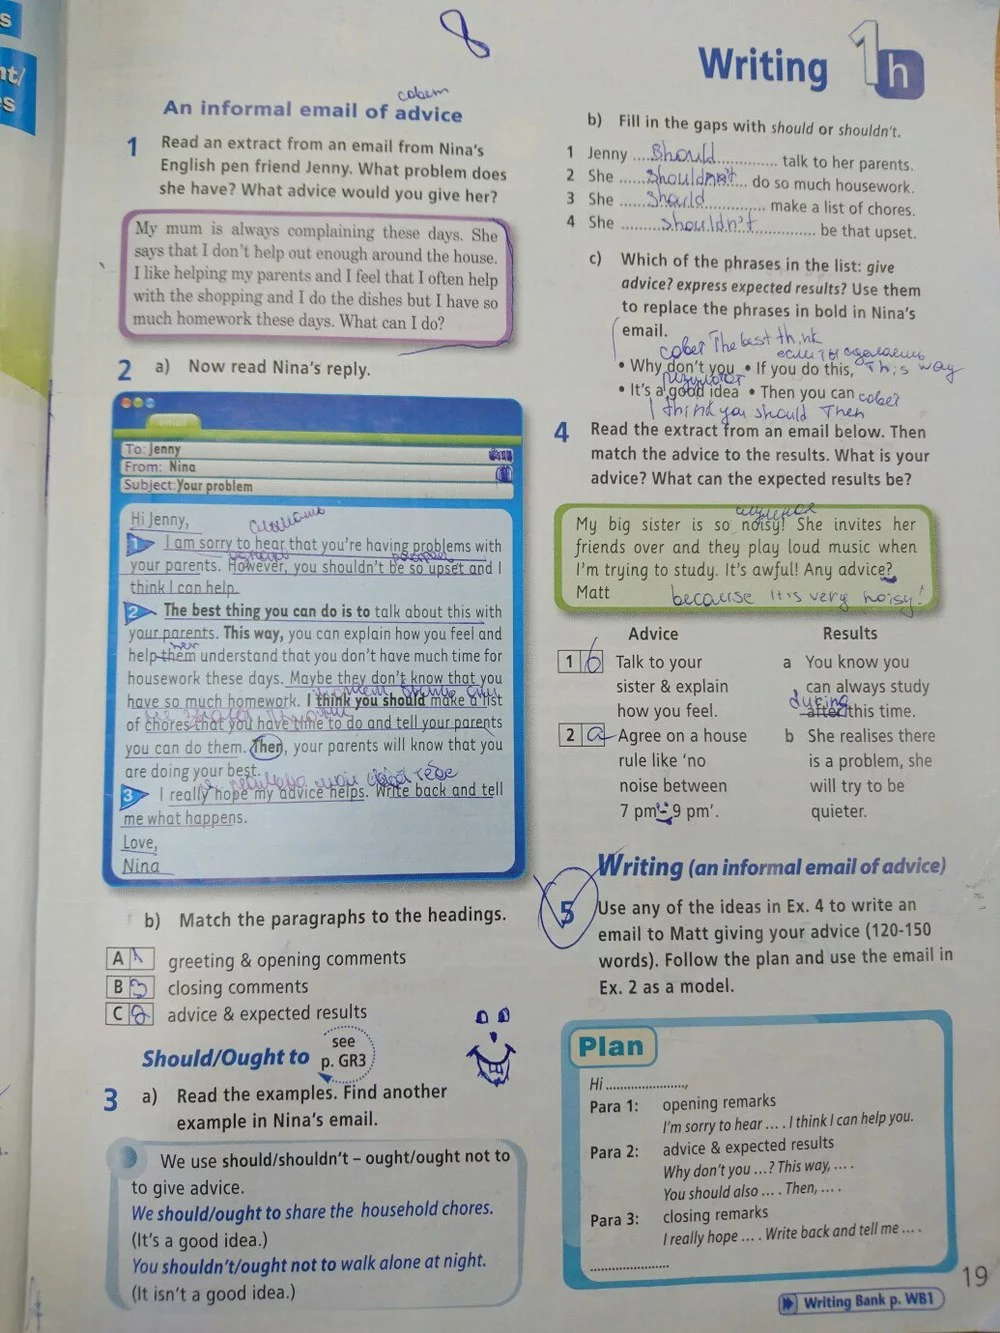 8
Writing 1h
совет
An informal email of advice
1 Read an extract from an email from Nina's
English pen friend Jenny. What problem does
she have? What advice would you give her?
My mum is always complaining these days. She
says that I don't help out enough around the house.
I like helping my parents and I feel that I often help
with the shopping and I do the dishes but I have so
much homework these days. What can I do?
2 a) Now read Nina's reply.
email
To: Jenny
From: Nina
Subject: Your problem
Hi Jenny,
слышать
1 I am sorry to hear that you're having problems with
your parents. However, you shouldn't be so upset and I
think I can help.
2 The best thing you can do is to talk about this with
your parents. This way, you can explain how you feel and
help them understand that you don't have much time for
housework these days. Maybe they don't know that you
have so much homework. I think you should make a list
of chores that you have time to do and tell your parents
you can do them. Then, your parents will know that you
are doing your best.
3 I really hope my advice helps. Write back and tell
me what happens.
Love,
Nina
b) Match the paragraphs to the headings.
A 1 greeting & opening comments
B 3 closing comments
C 2 advice & expected results
Should/Ought to see
p. GR3
3 a) Read the examples. Find another
example in Nina's email.
We use should/shouldn't – ought/ought not to
to give advice.
We should/ought to share the household chores.
(It's a good idea.)
You shouldn't/ought not to walk alone at night.
(It isn't a good idea.)
b) Fill in the gaps with should or shouldn't.
1 Jenny ...should... talk to her parents.
2 She ...shouldn't... do so much housework.
3 She ...should... make a list of chores.
4 She ...shouldn't... be that upset.
c) Which of the phrases in the list: give
advice? express expected results? Use them
to replace the phrases in bold in Nina's
email.
совет The best think
если ты сделаешь
• Why don't you • If you do this, This way
результат
• It's a good idea • Then you can совет
I think you should Then
4 Read the extract from an email below. Then
match the advice to the results. What is your
advice? What can the expected results be?
шумная
My big sister is so noisy! She invites her
friends over and they play loud music when
I'm trying to study. It's awful! Any advice?
Matt because it's very noisy!
Advice Results
1 b Talk to your
sister & explain
how you feel.
2 a Agree on a house
rule like 'no
noise between
7 pm - 9 pm'.
a You know you
can always study
during
after this time.
b She realises there
is a problem, she
will try to be
quieter.
Writing (an informal email of advice)
5 Use any of the ideas in Ex. 4 to write an
email to Matt giving your advice (120-150
words). Follow the plan and use the email in
Ex. 2 as a model.
Plan
Hi ......................,
Para 1: opening remarks
I'm sorry to hear ... . I think I can help you.
Para 2: advice & expected results
Why don't you ...? This way, ... .
You should also ... . Then, ... .
Para 3: closing remarks
I really hope ... . Write back and tell me ... .
......................
19
Writing Bank p. WB1